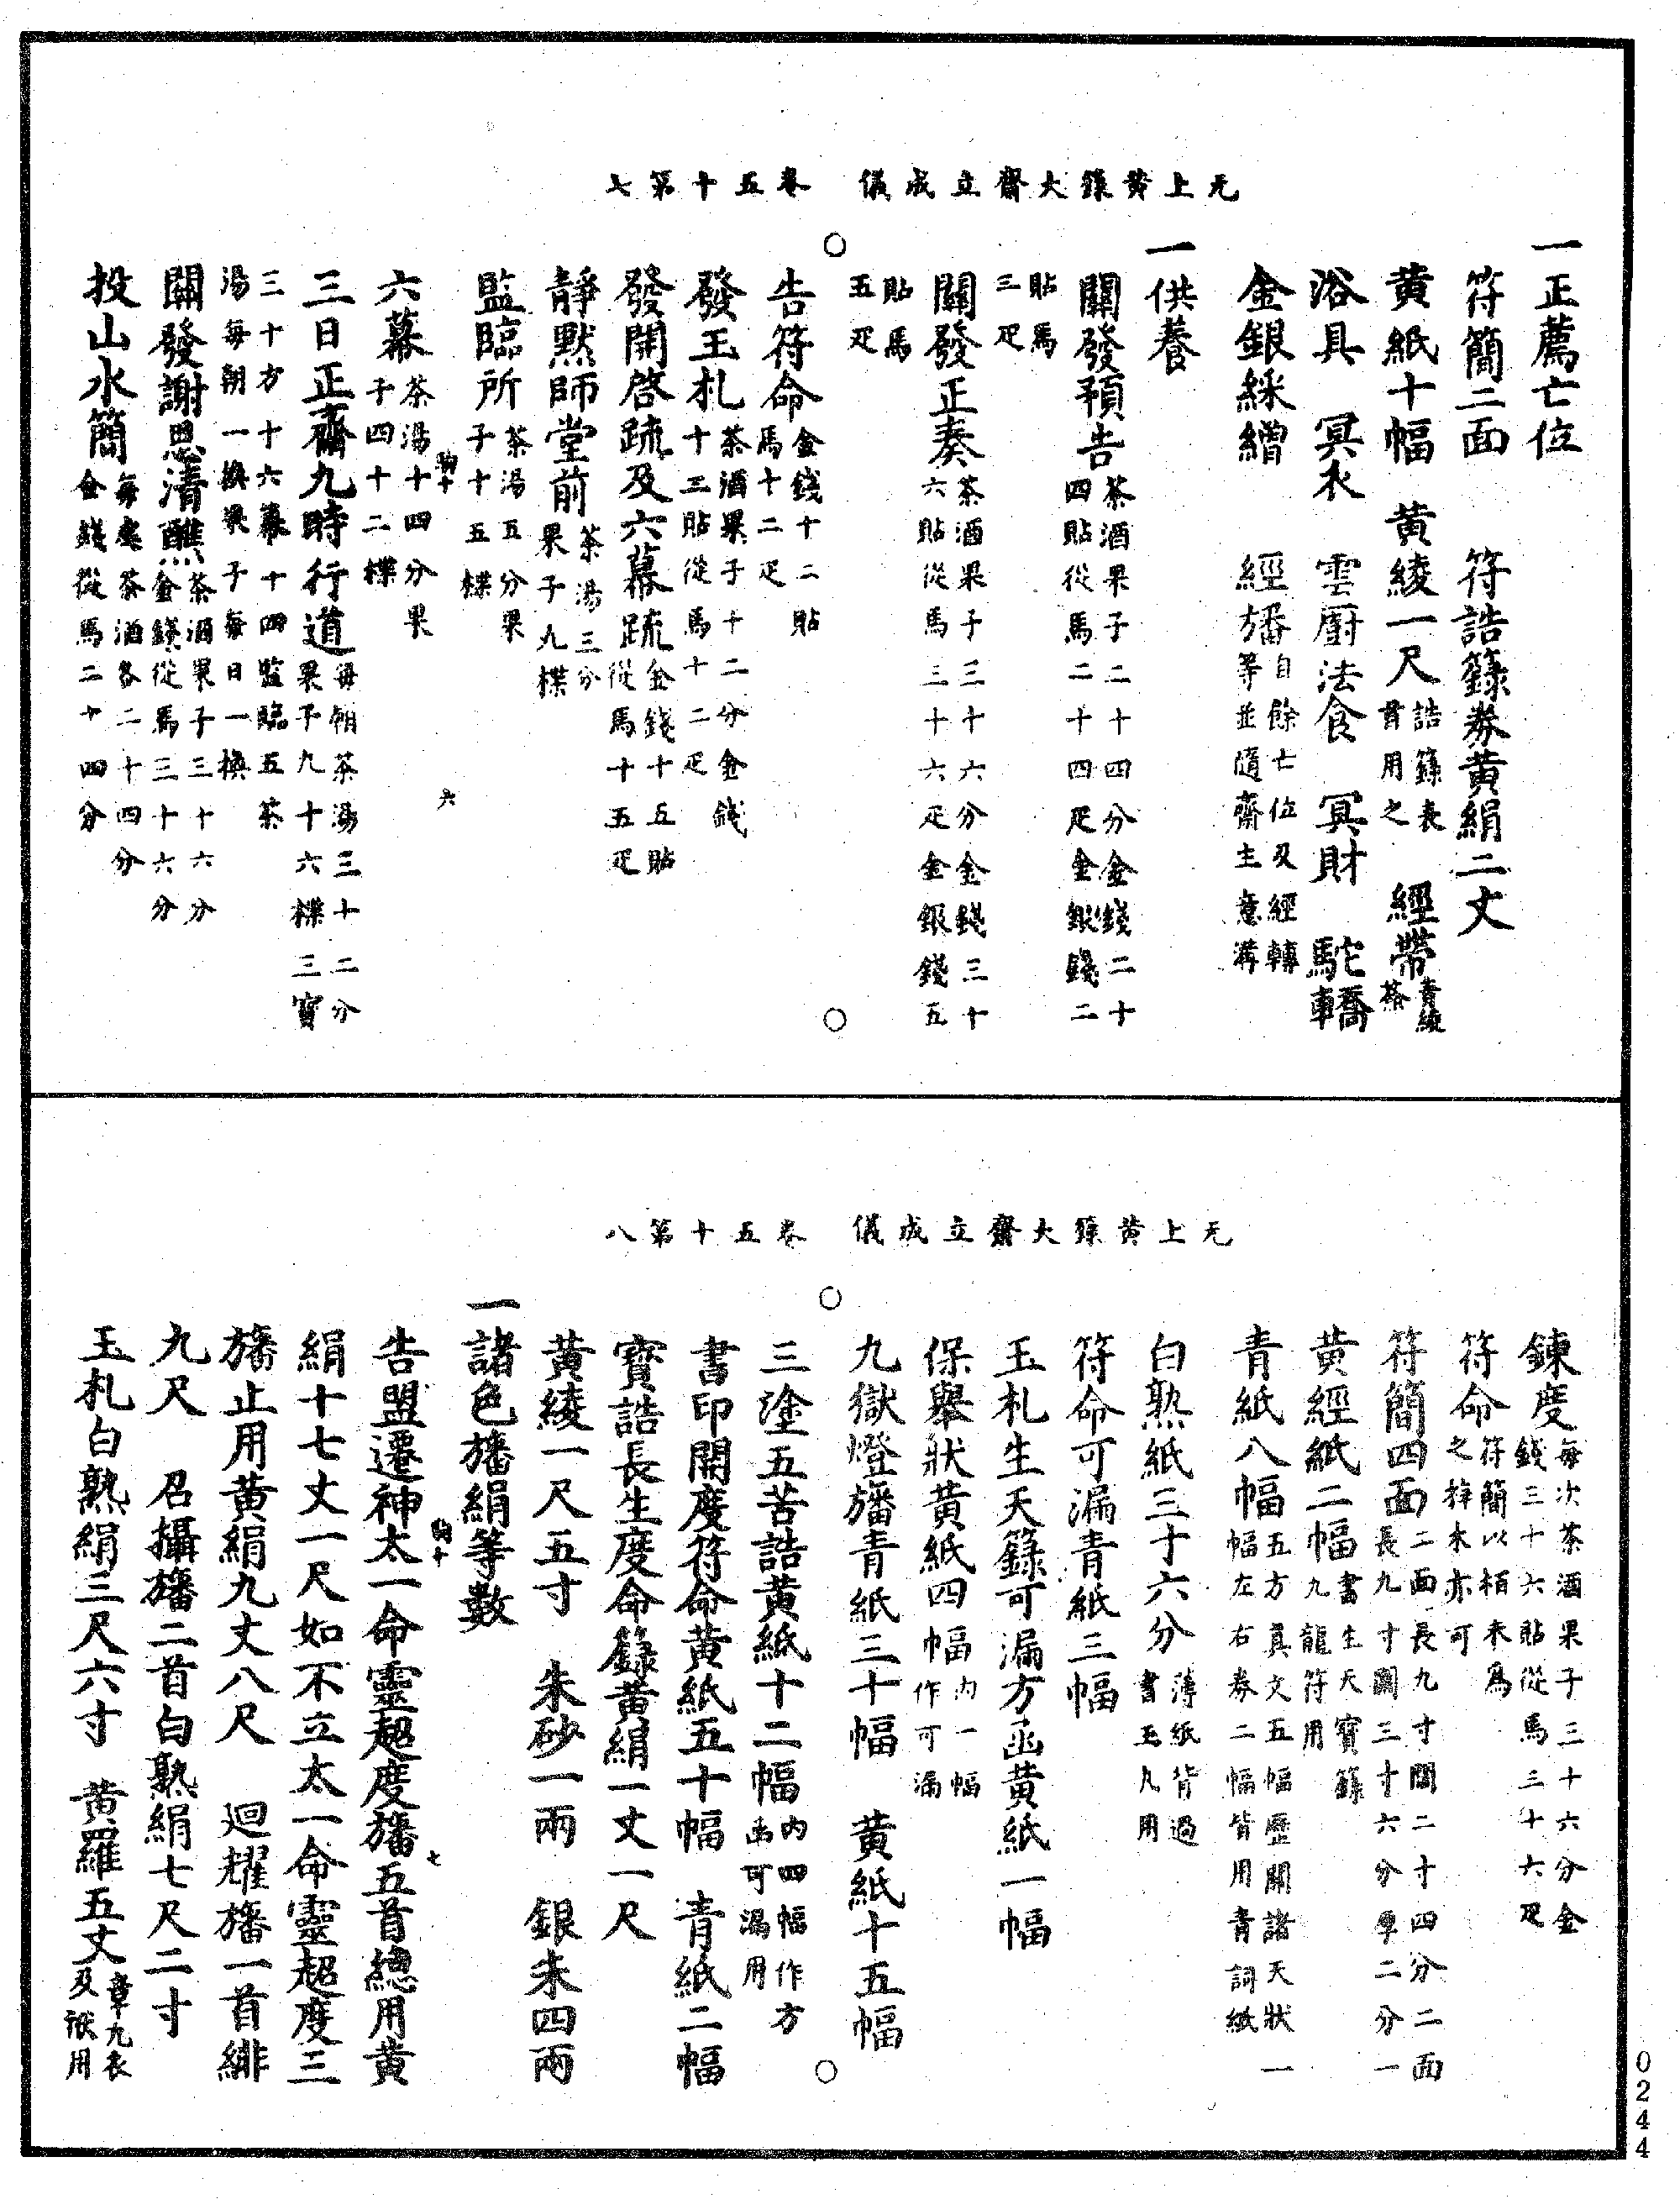 无上黃籙大齋立成儀　卷五十第七
一正薦亡位
符簡二面　符誥籙券黃絹二丈
黃紙十幅　黃綾一尺誥籙表首用之　經帶青綾搭
浴具　冥衣　雲厨法食　冥財　駝轎
金銀綵繒　經旛自餘亡位及經轉等並隨齋主意溝
一供養
關發預告茶酒果子二十四分金錢二十四貼從馬二十四疋金銀錢二
貼馬三疋
關發正奏茶酒果子三十六分金錢三十六貼從馬三十六疋金銀錢五
貼馬五疋
告符命金錢十二貼馬十二疋
發玉札茶酒果子十二分金錢十三貼從馬十二疋
發開啓疏及六幕疏金錢十五貼從馬十五疋
靜默師堂前茶湯三分果子九楪
監臨所茶湯五分果子十五楪
六幕茶湯十四分果子四十二楪
六
三日正齋九時行道每朝茶湯三十二分果子九十六楪三寶
三十方十六幕十四監臨五茶湯每朝一換果子每日一換
關發謝恩清醮茶酒果子三十六分金錢從馬三十六分
投山水簡每處茶酒各二十四分金錢從馬二十四分
无上黃籙大齋立成儀　卷五十第八
鍊度每次茶酒果子三十六分金錢三十六貼從馬三十六疋
符命符簡以栢木爲之梓木亦可
符簡四面二面長九寸闊二寸四分二面長九寸闊三寸六分厚二分一
黃經紙二幅書生天寶籙九龍符用
青紙八幅五方真文五幅歷關諸天狀一幅左右券二幅皆用青詞紙
白熟紙三十六分薄紙背過書玉札用
符命可漏青紙三幅
玉札生天籙可漏方函黃紙一幅
保舉狀黃紙四幅內一幅作可漏
九獄燈旛青紙三十幅　黃紙十五幅
三塗五苦誥黃紙十二幅內四幅作方函可漏用
書印開度符命黃紙五十幅　青紙二幅
寶誥長生度命籙黃絹一丈一尺
黃綾一尺五寸　朱砂一兩　銀朱四兩
一諸色旛絹等數
七
告盟遷神太一命靈超度旛五首總用黃
絹十七丈一尺如不立太一命靈超度三
旛止用黃絹九丈八尺　迴耀旛一首緋
九尺　召攝旛二首白熟絹七尺二寸
玉札白熟絹三尺六寸　黃羅五丈章九表及詞用
0244